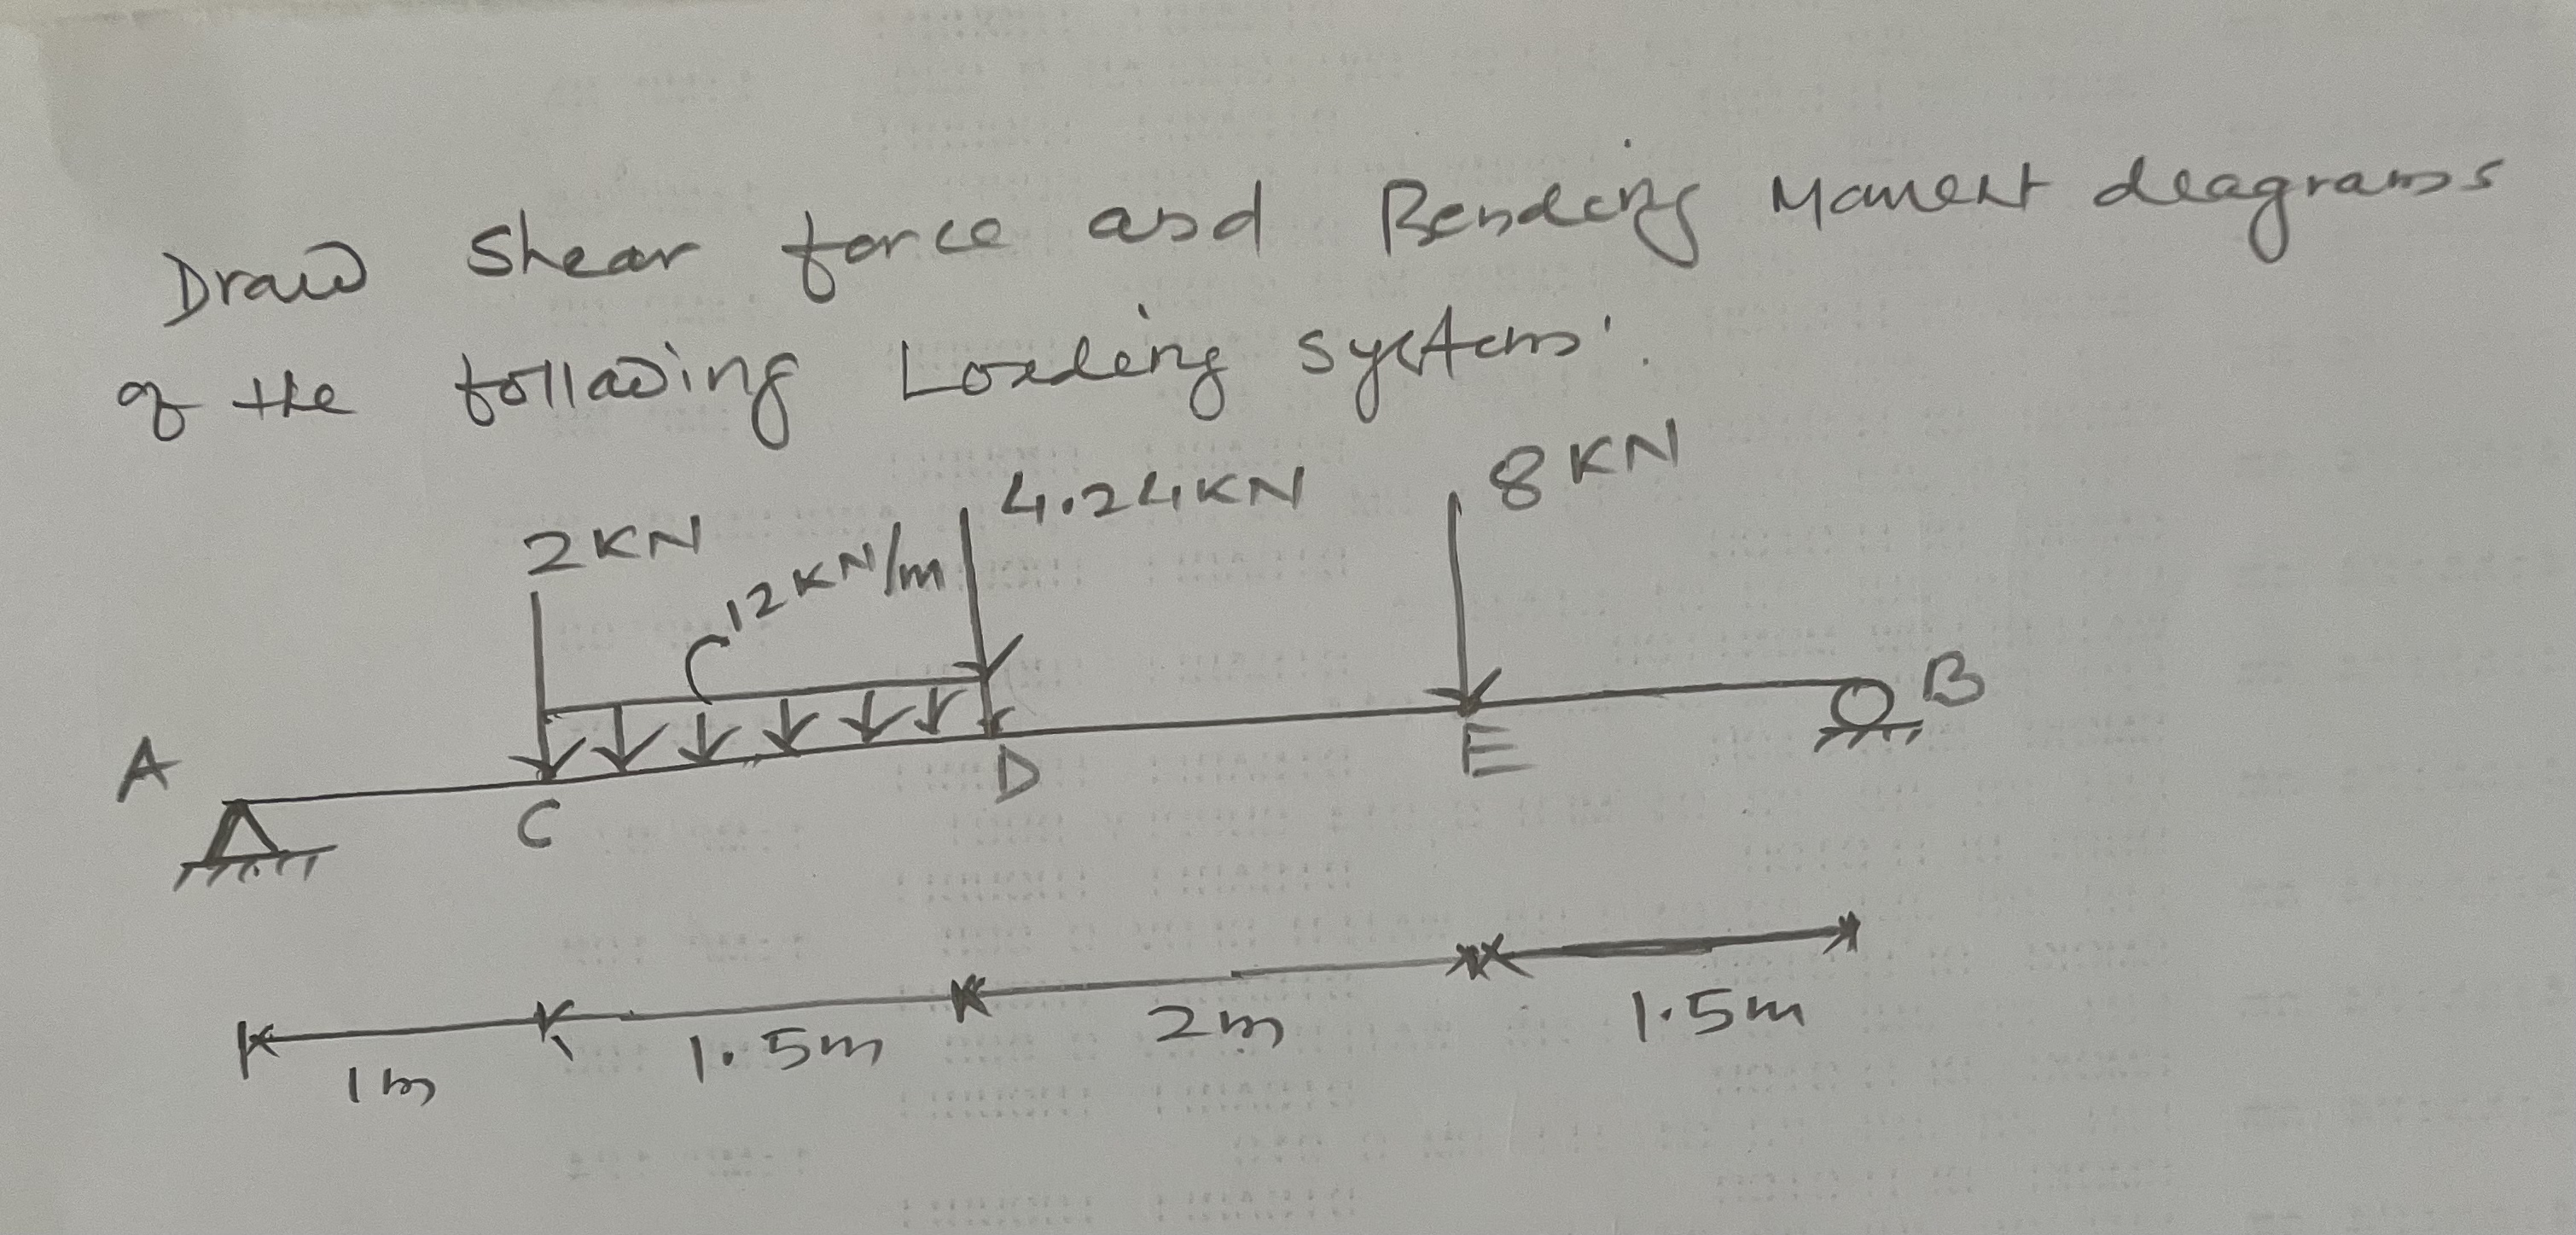 Draw shear force and Bending Moment diagrams
of the following Loading systems:
2KN
12KN/m
4.24KN
8KN
A
C
D
E
B
1m
1.5m
2m
1.5m